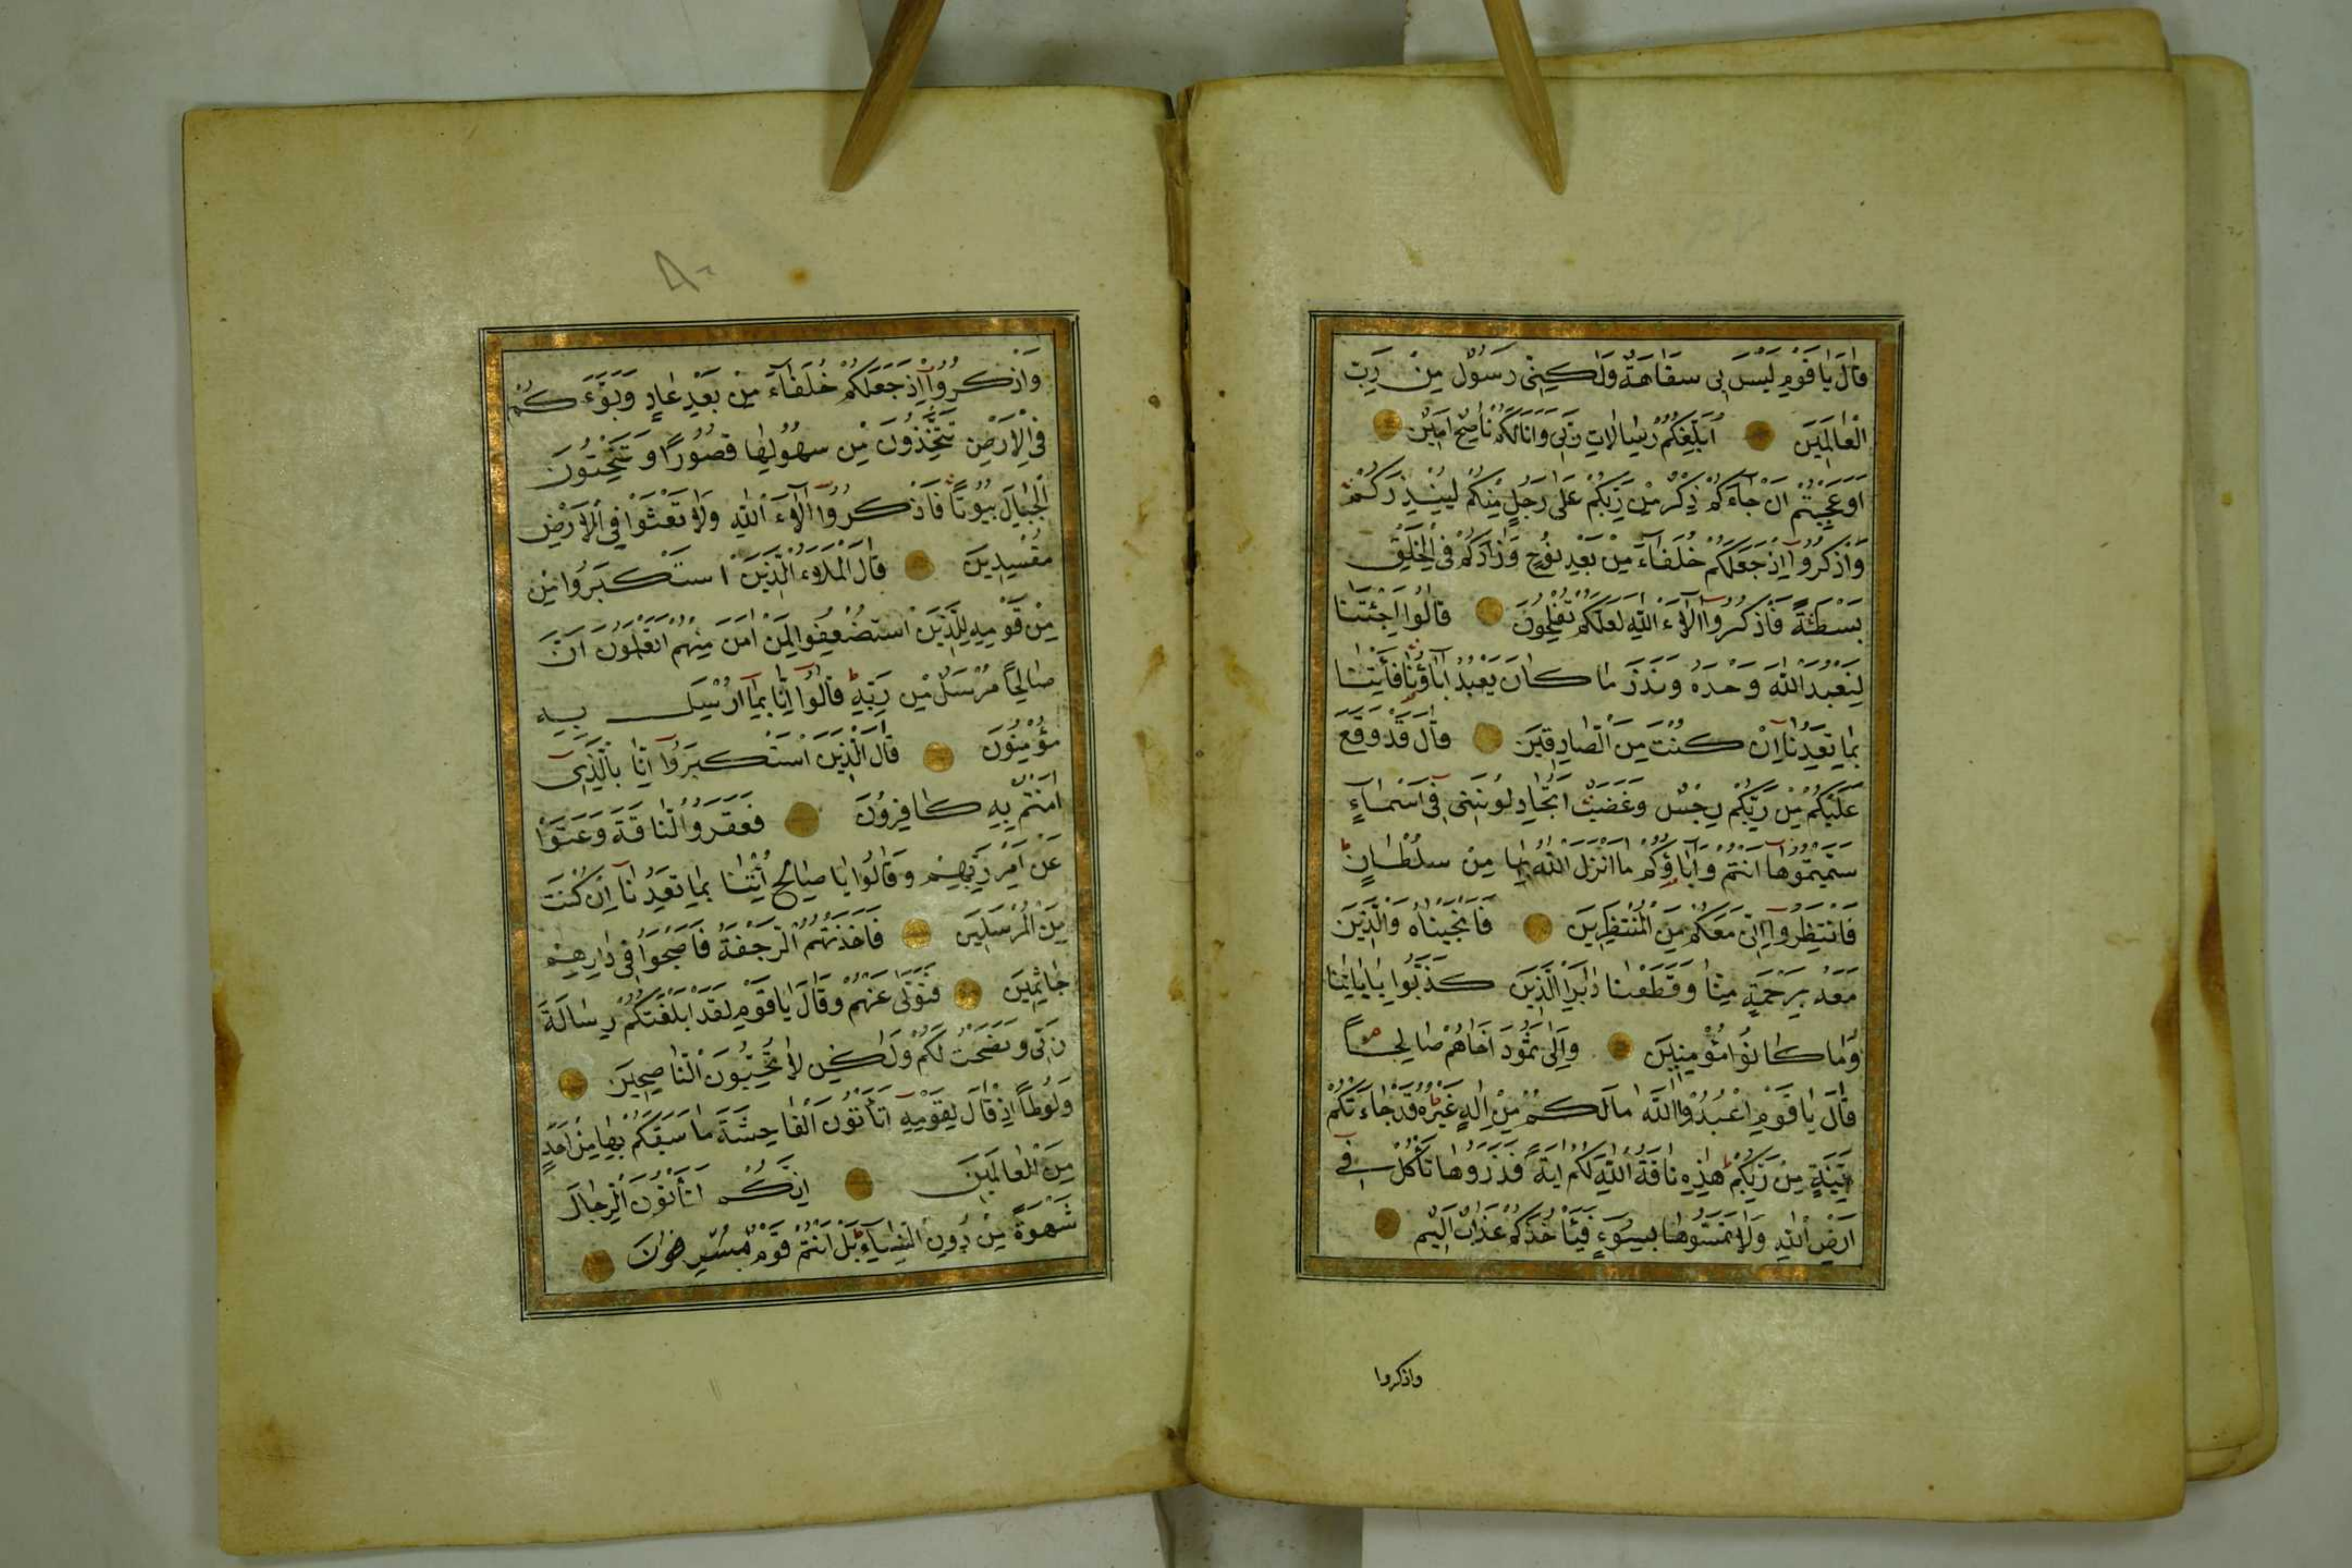 قَالَ يَا قَوْمِ لَيْسَ بِى سَفَاهَةٌ وَلَٰكِنِّى رَسُولٌ مِنْ رَبِّ
الْعَالَمِينَ اُبَلِّغُكُمْ رِسَالَاتِ رَبِّى وَاَنَا لَكُمْ نَاصِحٌ اَمِينٌ
اَوَعَجِبْتُمْ اَنْ جَاءَكُمْ ذِكْرٌ مِنْ رَبِّكُمْ عَلَى رَجُلٍ مِنْكُمْ لِيُنْذِرَكُمْ
وَاذْكُرُوا اِذْ جَعَلَكُمْ خُلَفَاءَ مِنْ بَعْدِ نُوحٍ وَزَادَكُمْ فِى الْخَلْقِ
بَسْطَةً فَاذْكُرُوا اٰلَاءَ اللّٰهِ لَعَلَّكُمْ تُفْلِحُونَ قَالُوا اَجِئْتَنَا
لِنَعْبُدَ اللّٰهَ وَحْدَهُ وَنَذَرَ مَا كَانَ يَعْبُدُ اٰبَاؤُنَا فَأْتِنَا
بِمَا تَعِدُنَا اِنْ كُنْتَ مِنَ الصَّادِقِينَ قَالَ قَدْ وَقَعَ
عَلَيْكُمْ مِنْ رَبِّكُمْ رِجْسٌ وَغَضَبٌ اَتُجَادِلُونَنِى فِى اَسْمَاءٍ
سَمَّيْتُمُوهَا اَنْتُمْ وَاٰبَاؤُكُمْ مَا اَنْزَلَ اللّٰهُ بِهَا مِنْ سُلْطَانٍ
فَانْتَظِرُوا اِنِّى مَعَكُمْ مِنَ الْمُنْتَظِرِينَ فَاَنْجَيْنَاهُ وَالَّذِينَ
مَعَهُ بِرَحْمَةٍ مِنَّا وَقَطَعْنَا دَابِرَ الَّذِينَ كَذَّبُوا بِاٰيَاتِنَا
وَمَا كَانُوا مُؤْمِنِينَ وَاِلَى ثَمُودَ اَخَاهُمْ صَالِحًا
قَالَ يَا قَوْمِ اعْبُدُوا اللّٰهَ مَا لَكُمْ مِنْ اِلٰهٍ غَيْرُهُ قَدْ جَاءَتْكُمْ
بَيِّنَةٌ مِنْ رَبِّكُمْ هٰذِهِ نَاقَةُ اللّٰهِ لَكُمْ اٰيَةً فَذَرُوهَا تَأْكُلْ فِى
اَرْضِ اللّٰهِ وَلَا تَمَسُّوهَا بِسُوءٍ فَيَأْخُذَكُمْ عَذَابٌ اَلِيمٌ
واذكروا
وَاذْكُرُوا اِذْ جَعَلَكُمْ خُلَفَاءَ مِنْ بَعْدِ عَادٍ وَبَوَّءَكُمْ
فِى الْاَرْضِ تَتَّخِذُونَ مِنْ سُهُولِهَا قُصُورًا وَتَنْحِتُونَ
الْجِبَالَ بُيُوتًا فَاذْكُرُوا اٰلَاءَ اللّٰهِ وَلَا تَعْثَوْا فِى الْاَرْضِ
مُفْسِدِينَ قَالَ الْمَلَاءُ الَّذِينَ اسْتَكْبَرُوا مِنْ
مِنْ قَوْمِهِ لِلَّذِينَ اسْتُضْعِفُوا لِمَنْ اٰمَنَ مِنْهُمْ اَتَعْلَمُونَ اَنَّ
صَالِحًا مُرْسَلٌ مِنْ رَبِّهِ قَالُوا اِنَّا بِمَا اُرْسِلَ بِهِ
مُؤْمِنُونَ قَالَ الَّذِينَ اسْتَكْبَرُوا اِنَّا بِالَّذِى
اٰمَنْتُمْ بِهِ كَافِرُونَ فَعَقَرُوا النَّاقَةَ وَعَتَوْا
عَنْ اَمْرِ رَبِّهِمْ وَقَالُوا يَا صَالِحُ ائْتِنَا بِمَا تَعِدُنَا اِنْ كُنْتَ
مِنَ الْمُرْسَلِينَ فَاَخَذَتْهُمُ الرَّجْفَةُ فَاَصْبَحُوا فِى دَارِهِمْ
جَاثِمِينَ فَتَوَلَّى عَنْهُمْ وَقَالَ يَا قَوْمِ لَقَدْ اَبْلَغْتُكُمْ رِسَالَةَ
رَبِّى وَنَصَحْتُ لَكُمْ وَلٰكِنْ لَا تُحِبُّونَ النَّاصِحِينَ
وَلُوطًا اِذْ قَالَ لِقَوْمِهِ اَتَأْتُونَ الْفَاحِشَةَ مَا سَبَقَكُمْ بِهَا مِنْ اَحَدٍ
مِنَ الْعَالَمِينَ اِنَّكُمْ لَتَأْتُونَ الرِّجَالَ
شَهْوَةً مِنْ دُونِ النِّسَاءِ بَلْ اَنْتُمْ قَوْمٌ مُسْرِفُونَ